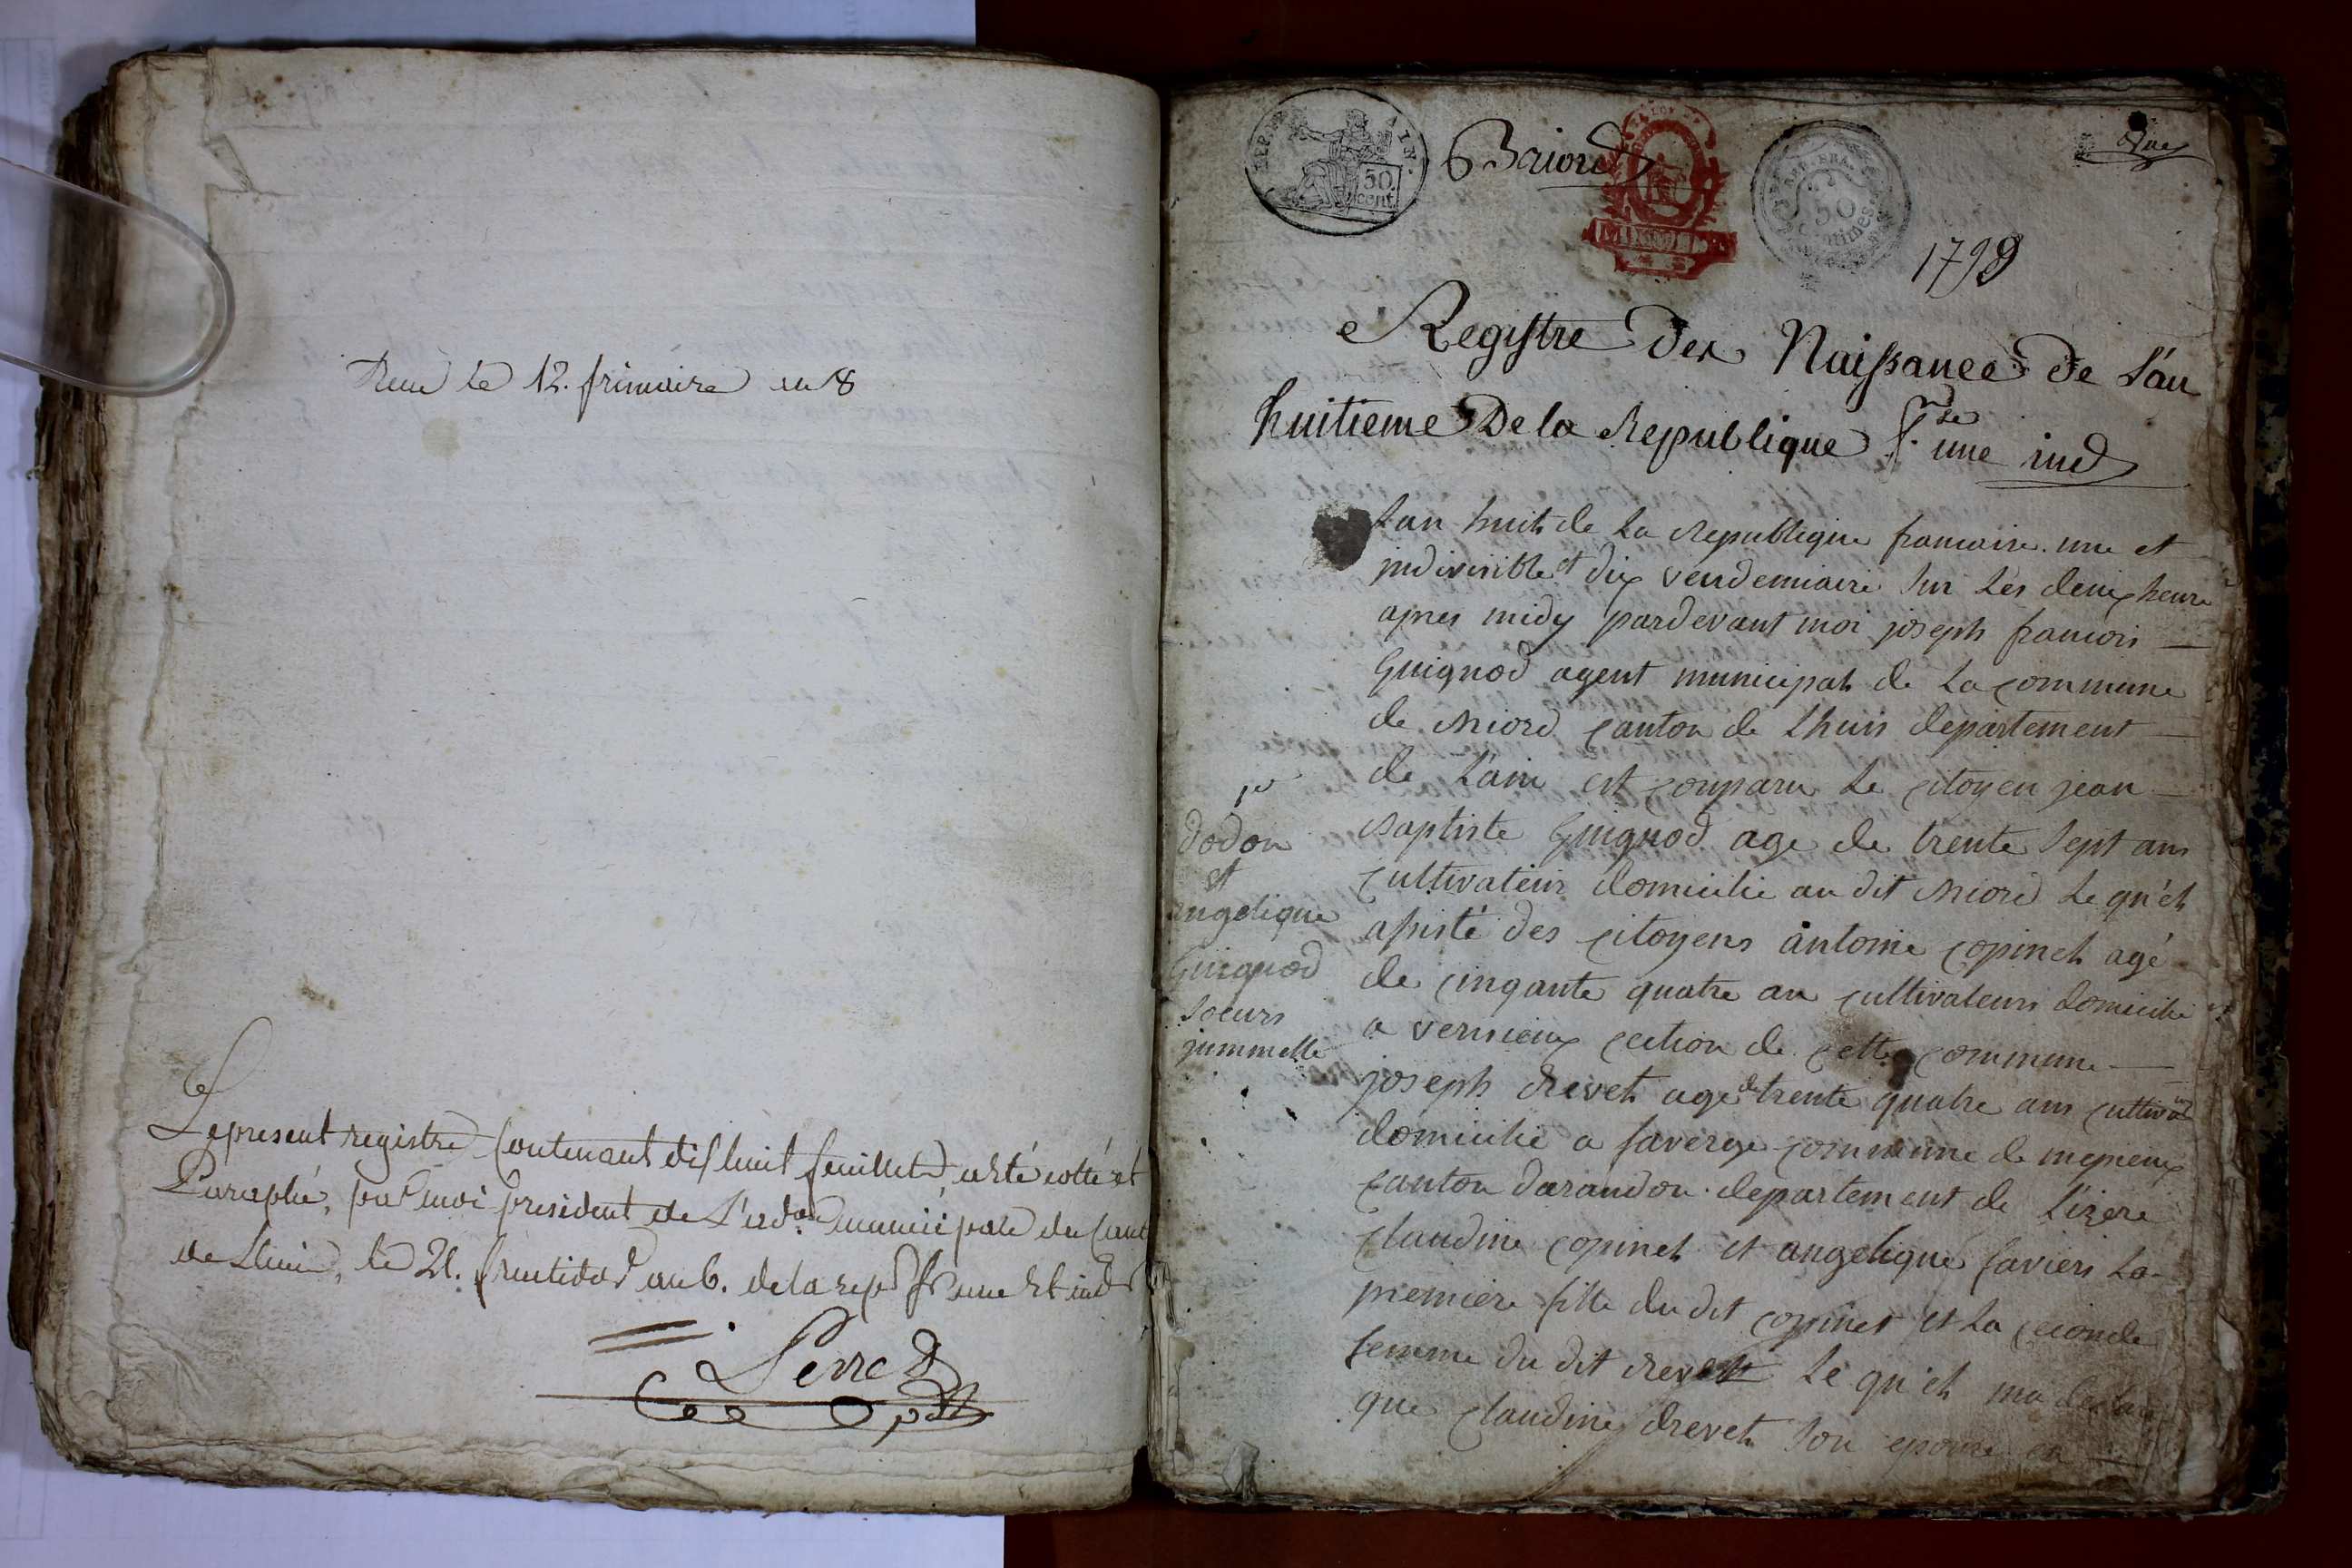 le 12. frimaire an 8
Le present registre contenant dishuit feuillets a été cotté et
Paraphé, par moi president de L'ad.on municipale du Cant
de Lhuis, le 21. fructidor an 6. de la rep. f.se une et ind
REP. FRA.
50 cent.
Briord
50 Centimes
1799
Registre des Naissance de L'an
huitieme De la Republique f.se une ind
Lan huit de La Republique francaise. une et
jndivisible et dix vendemiaire sur Les deux heure
apres midy pardevant moi joseph francois
Guignod agent municipah de La commune
de Briord canton de Lhuis departement
de L'ain est comparu Le citoyen jean
Baptiste Guignod age de trente sept ans
cultivateur domicilie au dit Briord Le qu'eh
assisté des citoyens antoine copineh agé
de cinqante quatre an cultivateur domicilie
a verizieux cection de cette commune
joseph drevet age de trente quatre ans cultivat
domicilie a faverge commune de mepieux
canton darandon departement de L'izere
claudine copineh et angelique faviers La
premiere fille du dit copinet et La ceconde
femme du dit drevet Le qu'eh ma declare
que claudine drevet son epouse
1er
dodon
et
angelique
Guignod
soeurs
jummelle